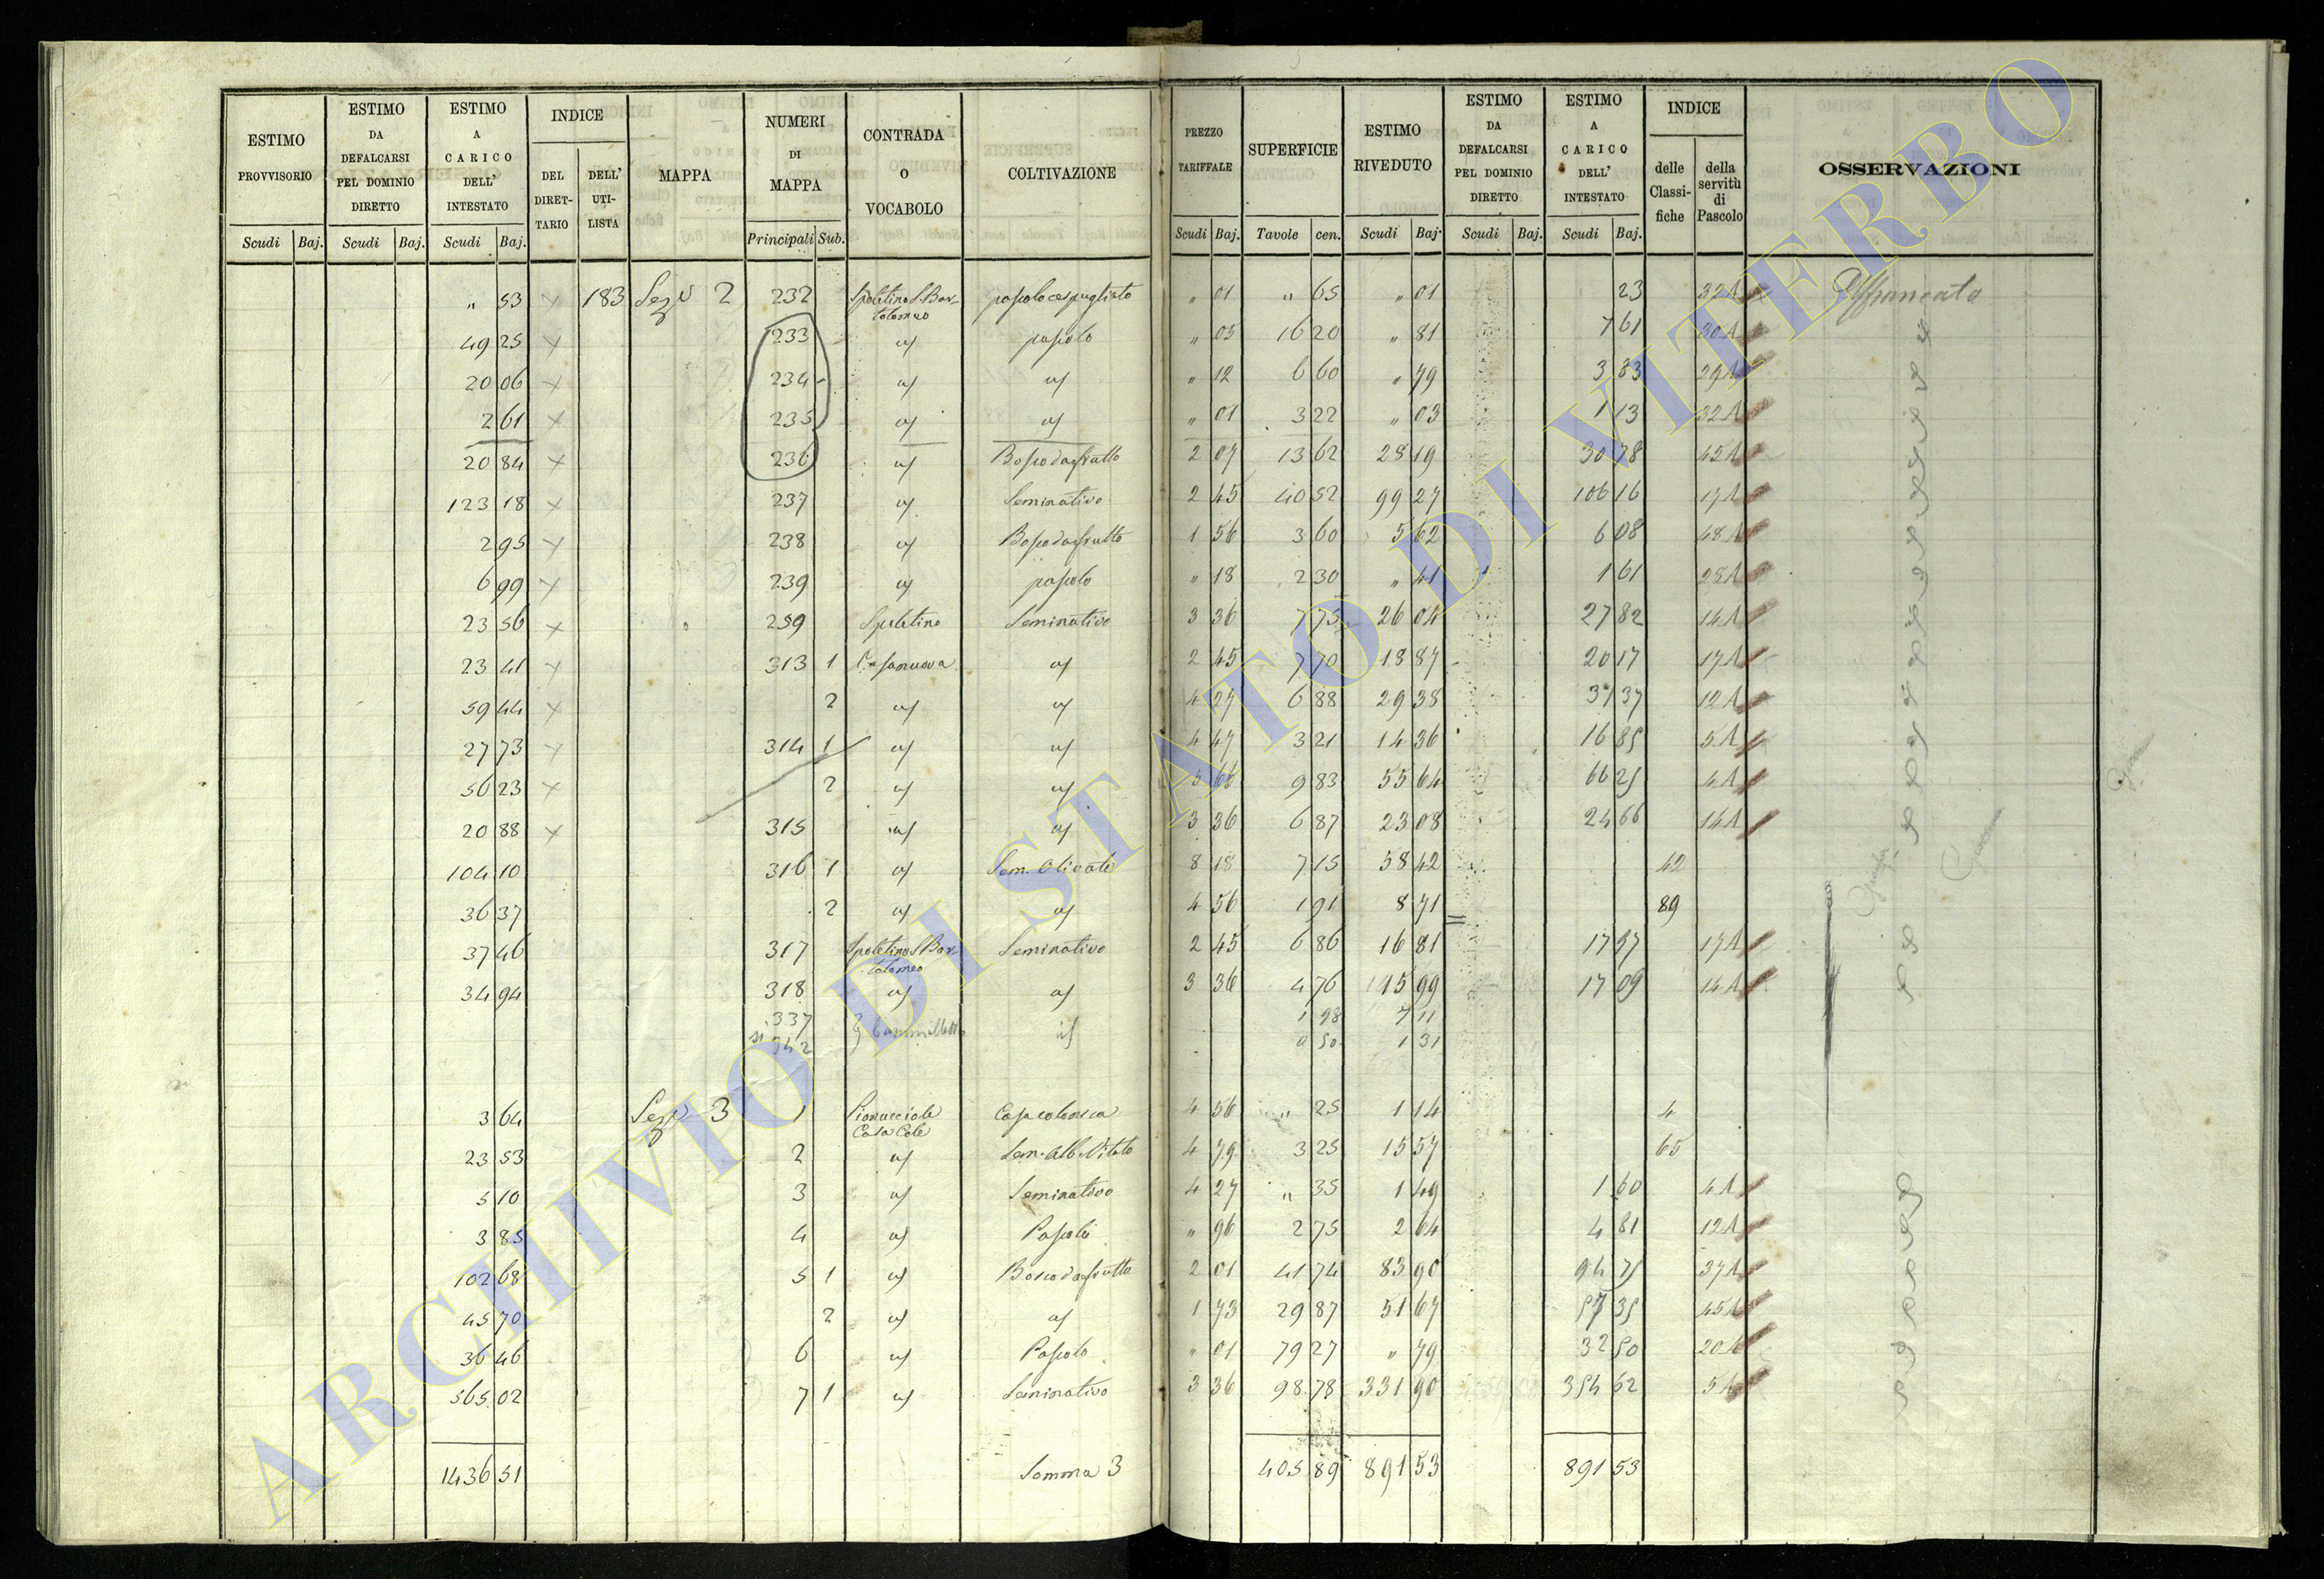 ESTIMO PROVVISORIO | ESTIMO DA DEFALCARSI PEL DOMINIO DIRETTO | ESTIMO A CARICO DELL' INTESTATO | INDICE DEL DIRETTARIO | DELL' UTILISTA | MAPPA | NUMERI DI MAPPA | CONTRADA O VOCABOLO | COLTIVAZIONE | PREZZO TARIFFALE | SUPERFICIE | ESTIMO RIVEDUTO | ESTIMO DA DEFALCARSI PEL DOMINIO DIRETTO | ESTIMO A CARICO DELL' INTESTATO | INDICE delle Classifiche | della servitù di Pascolo | OSSERVAZIONI
Scudi Baj. Scudi Baj. Scudi Baj. Principali Sub. Scudi Baj. Tavole cen. Scudi Baj. Scudi Baj. Scudi Baj.
" 53 183 Sez 2 232 Spoletino S. Bartolomeo pascolo cespugliato " 01 " 65 " 01 23 32A Affrancato
49 25 233 pascolo " 05 16 20 " 81 7 61 30A
20 06 234 " 12 6 60 " 79 3 53 29A
2 61 235 " 01 3 22 " 03 1 13 32A
20 84 236 Bosco da frutto 2 07 13 62 28 19 30 78 45A
123 18 237 Seminativo 2 45 40 52 99 27 106 16 17A
2 95 238 Bosco da frutto 1 56 3 60 5 62 6 08 48A
6 99 239 pascolo " 18 2 30 " 41 1 61 28A
23 56 259 Spoletino Seminativo 3 36 7 75 26 04 27 82 14A
23 41 313 1 Casanuova 2 45 7 70 18 87 20 17 17A
59 44 2 4 27 6 88 29 38 31 37 12A
27 73 314 1 4 47 3 21 14 36 16 85 5A
56 23 2 5 66 9 83 55 64 66 25 4A
20 88 315 3 36 6 87 23 08 24 66 14A
104 10 316 1 Sem. Olivato 8 18 7 15 58 42 42
36 37 2 4 56 1 91 8 71 89
37 46 317 Spoletino S. Bartolomeo Seminativo 2 45 6 86 16 81 17 97 17A
34 94 318 3 36 4 76 15 99 17 09 14A
337 1 98 7 11
342 0 50 1 31
3 64 Sez 3 1 Pionacciole Casa Cole Casa colonica 4 56 " 25 1 14 4
23 53 2 Sem. Alb. Vitato 4 79 3 25 15 57 65
5 10 3 Seminativo 4 27 " 35 1 49 1 60 4A
3 85 4 Pascolo " 96 2 75 2 64 4 81 12A
102 68 5 1 Bosco da frutto 2 01 41 74 83 90 94 75 37A
45 70 2 1 73 29 87 51 67 57 35 45A
36 46 6 Pascolo " 01 79 27 " 79 32 50 20A
365 02 7 1 Seminativo 3 36 98 78 331 90 354 62 5A
1436 51 Somma 3 405 89 891 53 891 53
ARCHIVIO DI STATO DI VITERBO